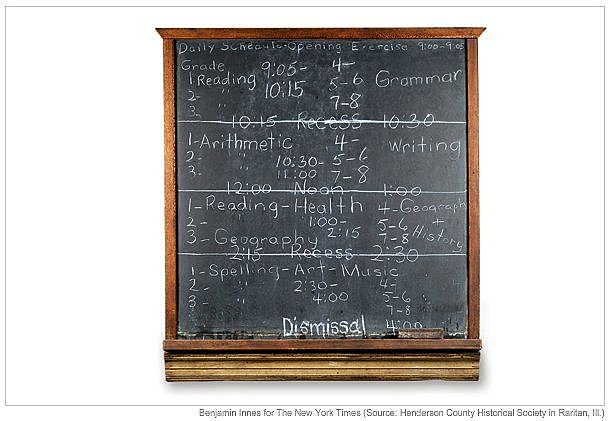 Daily Schedule-Opening Exercise 9:00-9:05
Grade 9:05- 4-
1 Reading 10:15 5-6 Grammar
2- "
3- " 7-8
10:15 Recess 10:30
1-Arithmetic 4- Writing
2- " 10:30- 5-6
3- " 12:00 7-8
12:00 Noon 1:00
1-Reading-Health 4-Geography
2- " 1:00- 5-6 +
3-Geography 2:15 7-8 History
2:15 Recess 2:30
1-Spelling-Art-Music
2- " 2:30- 4-
3- " 4:00 5-6
7-8
Dismissal 4:00
Benjamin Innes for The New York Times (Source: Henderson County Historical Society in Raritan, Ill.)